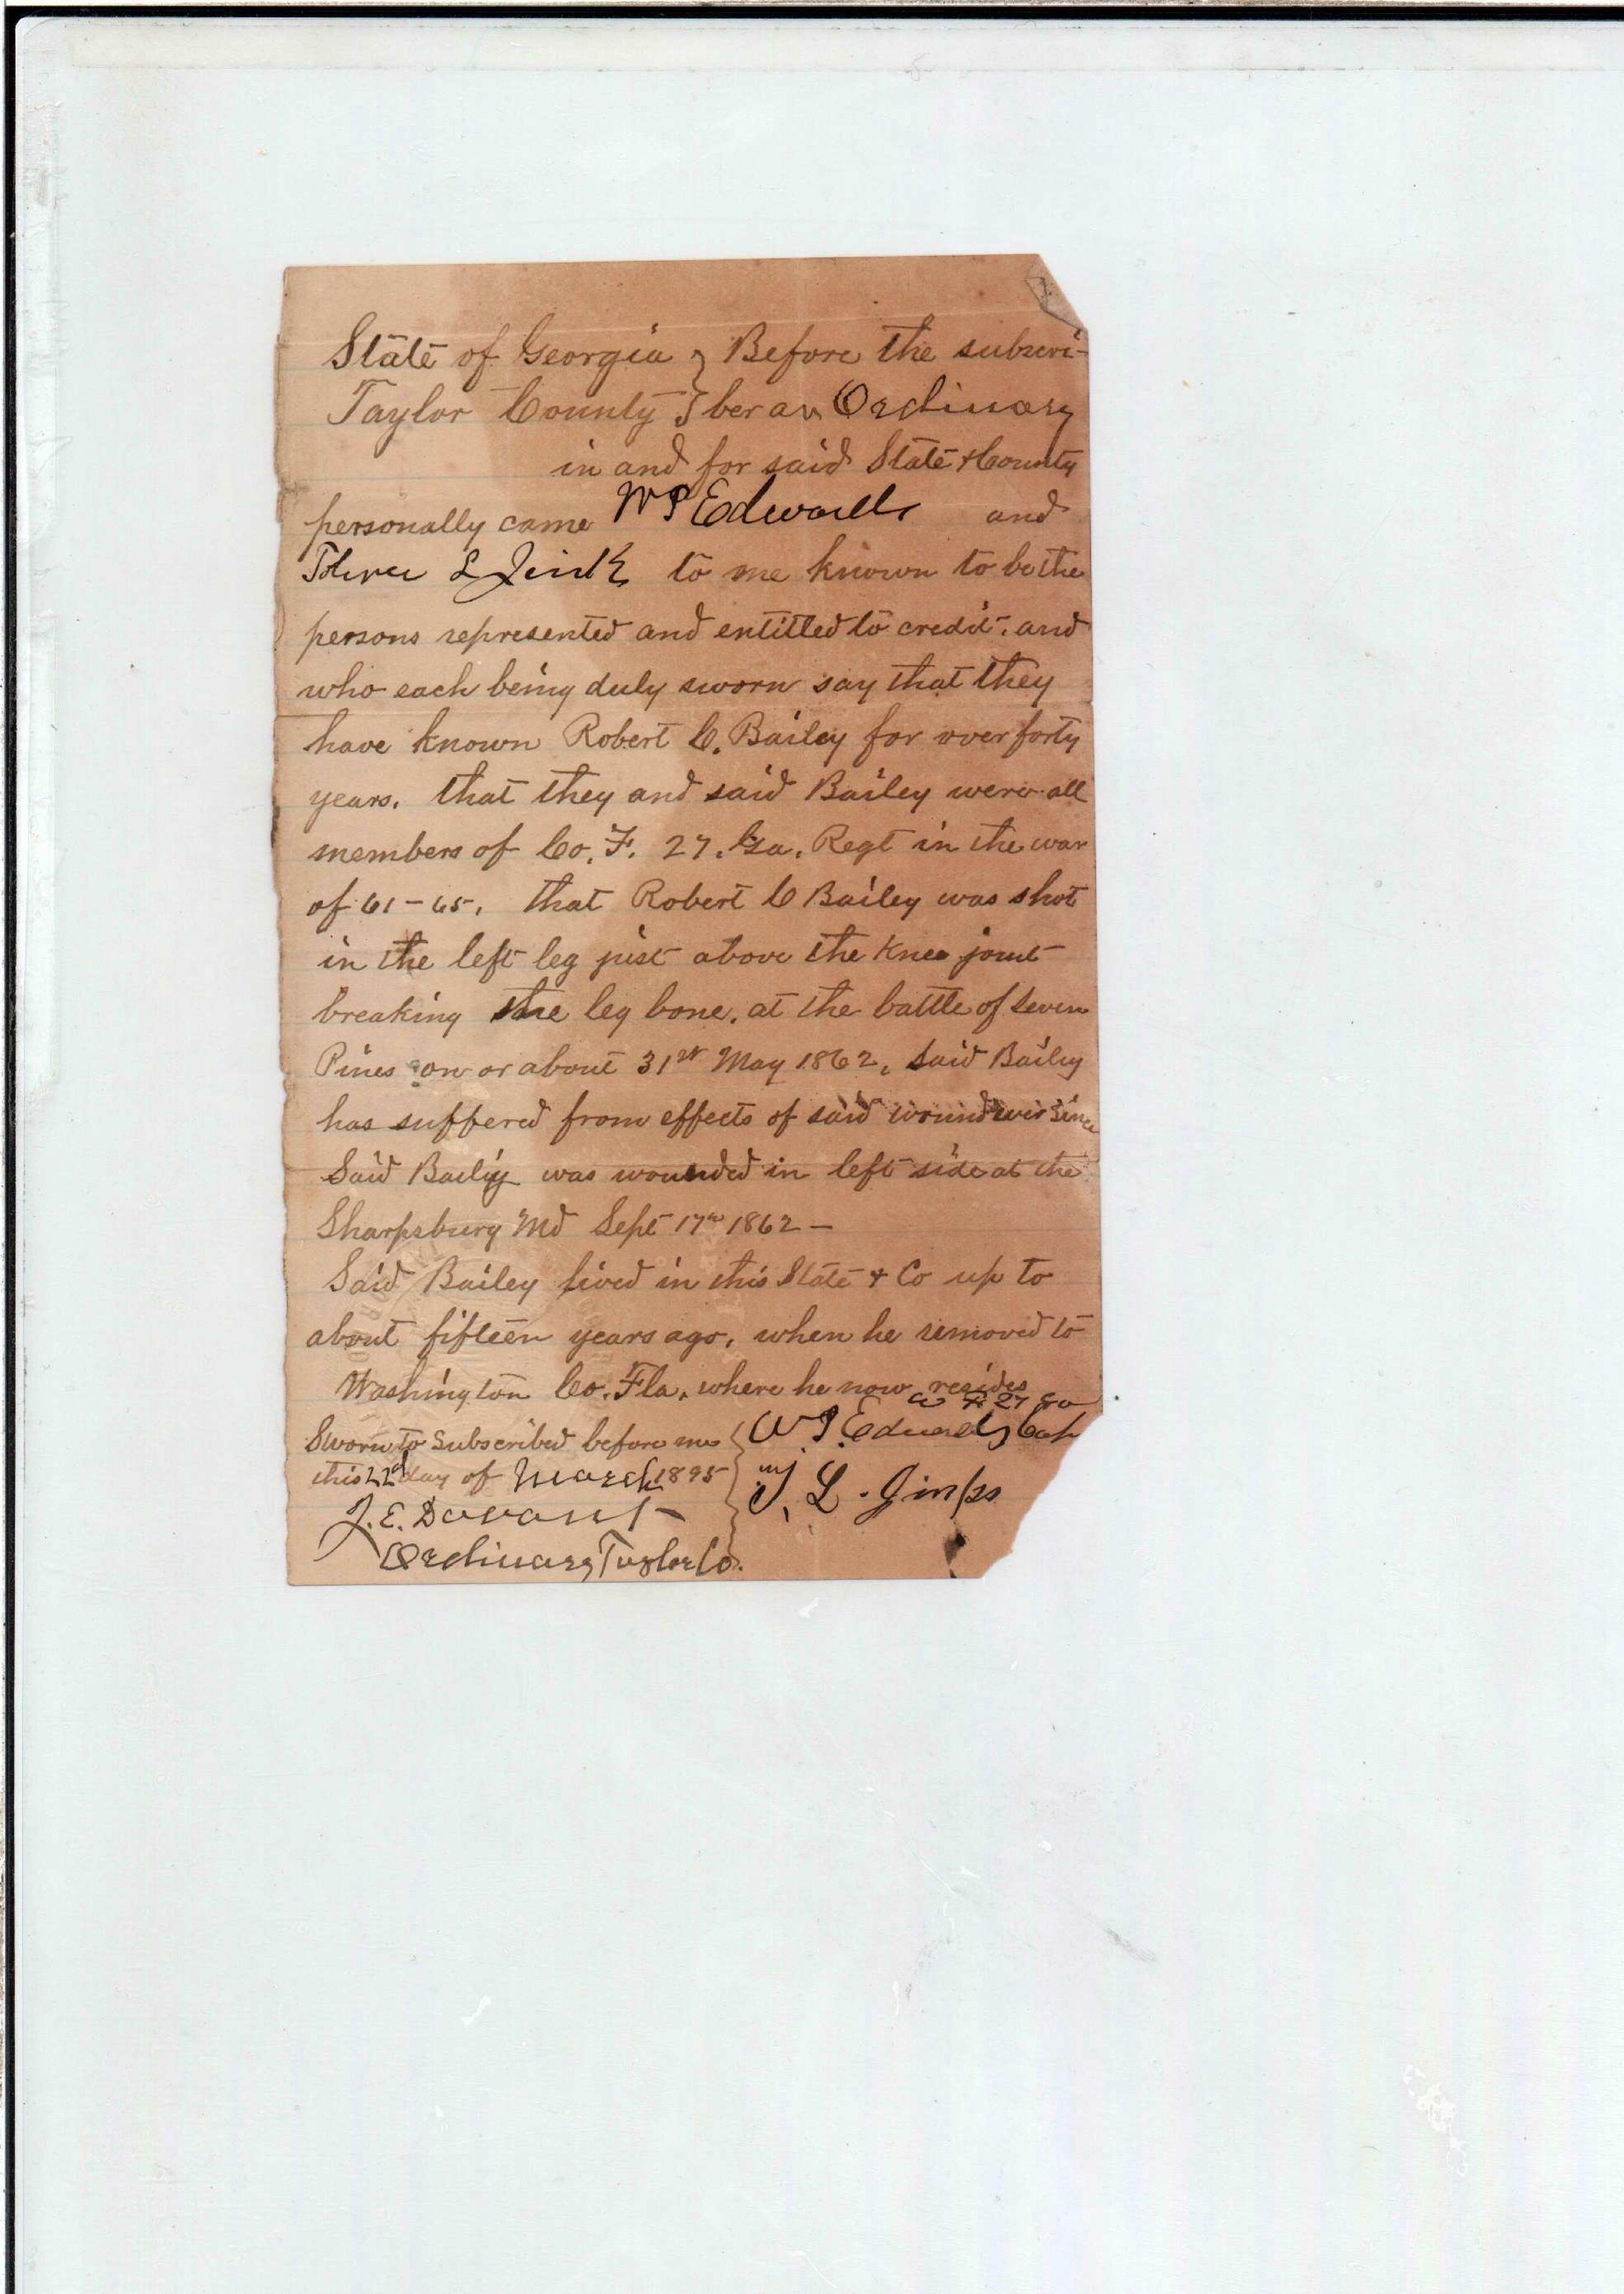 State of Georgia } Before the subscri-
Taylor County } ber an Ordinary
in and for said State & County
personally came W P Edwards and
L Jinks to me known to be the
persons represented and entitled to credit, and
who each being duly sworn say that they
have known Robert C. Bailey for over forty
years. that they and said Bailey were all
members of Co. F. 27. Ga. Regt in the war
of 61-65. that Robert C Bailey was shot
in the left leg just above the knee joint
breaking the leg bone. at the battle of Seven
Pines on or about 31st May 1862. said Bailey
has suffered from effects of said wound ever since
Said Bailey was wounded in left side at the
Sharpsburg Md Sept 17th 1862 —
Said Bailey lived in this State & Co up to
about fifteen years ago, when he removed to
Washington Co. Fla. where he now resides
Co F 27 Ga
Sworn to Subscribed before me { W P. Edwards Capt
this 22d day of March 1895 } T. L. Jinks
J. E. Davant
Ordinary Taylor Co.